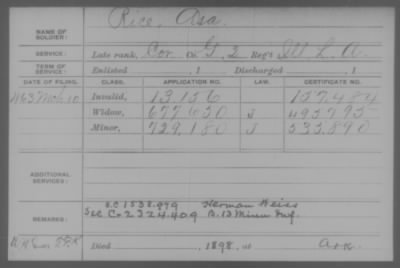 Rice, Asa.
NAME OF SOLDIER:
SERVICE: Late rank, Cor Co. G, 2 Reg't Ill L. A.
TERM OF SERVICE: Enlisted , 1 Discharged , 1
DATE OF FILING. CLASS. APPLICATION NO. LAW. CERTIFICATE NO.
1863 Mch 10 Invalid, 13.156 157.484
Widow, 677.650 J 495.795
Minor, 729.180 J 533.890
ADDITIONAL SERVICES:
X.C 1538.979 Herman Weiss
REMARKS: See Co 2324.409 B. 13 Minn Inf.
Died , 1898, at Ark